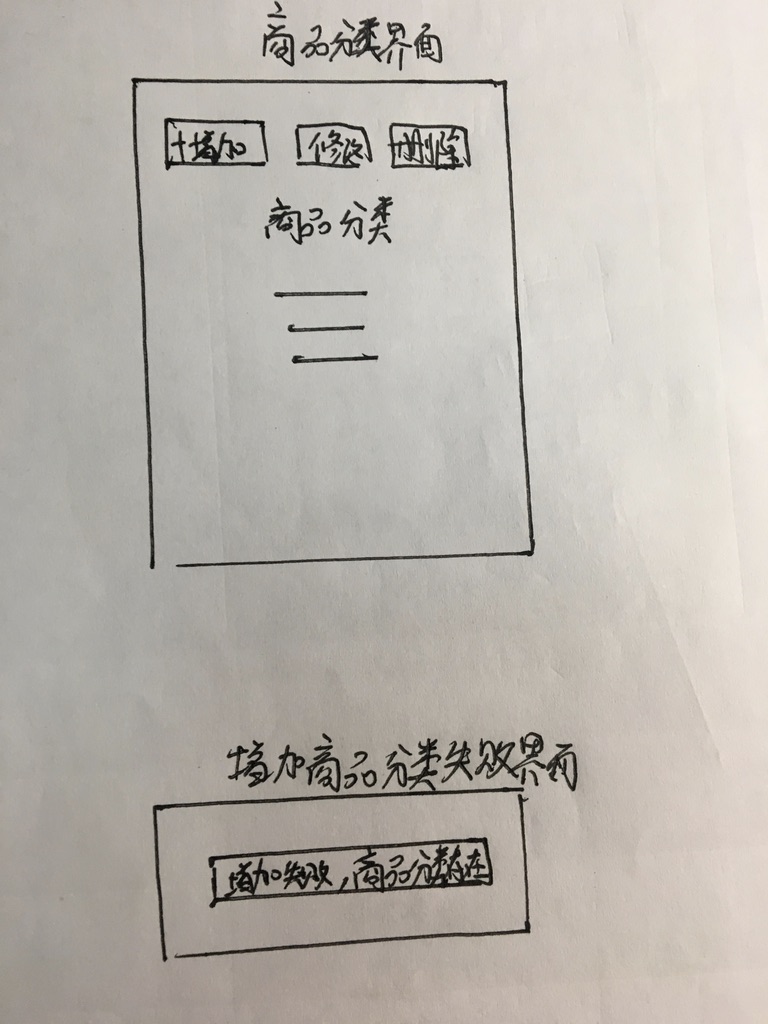 商品分类界面
+增加 修改 删除
商品分类
增加商品分类失败界面
增加失败,商品分类存在